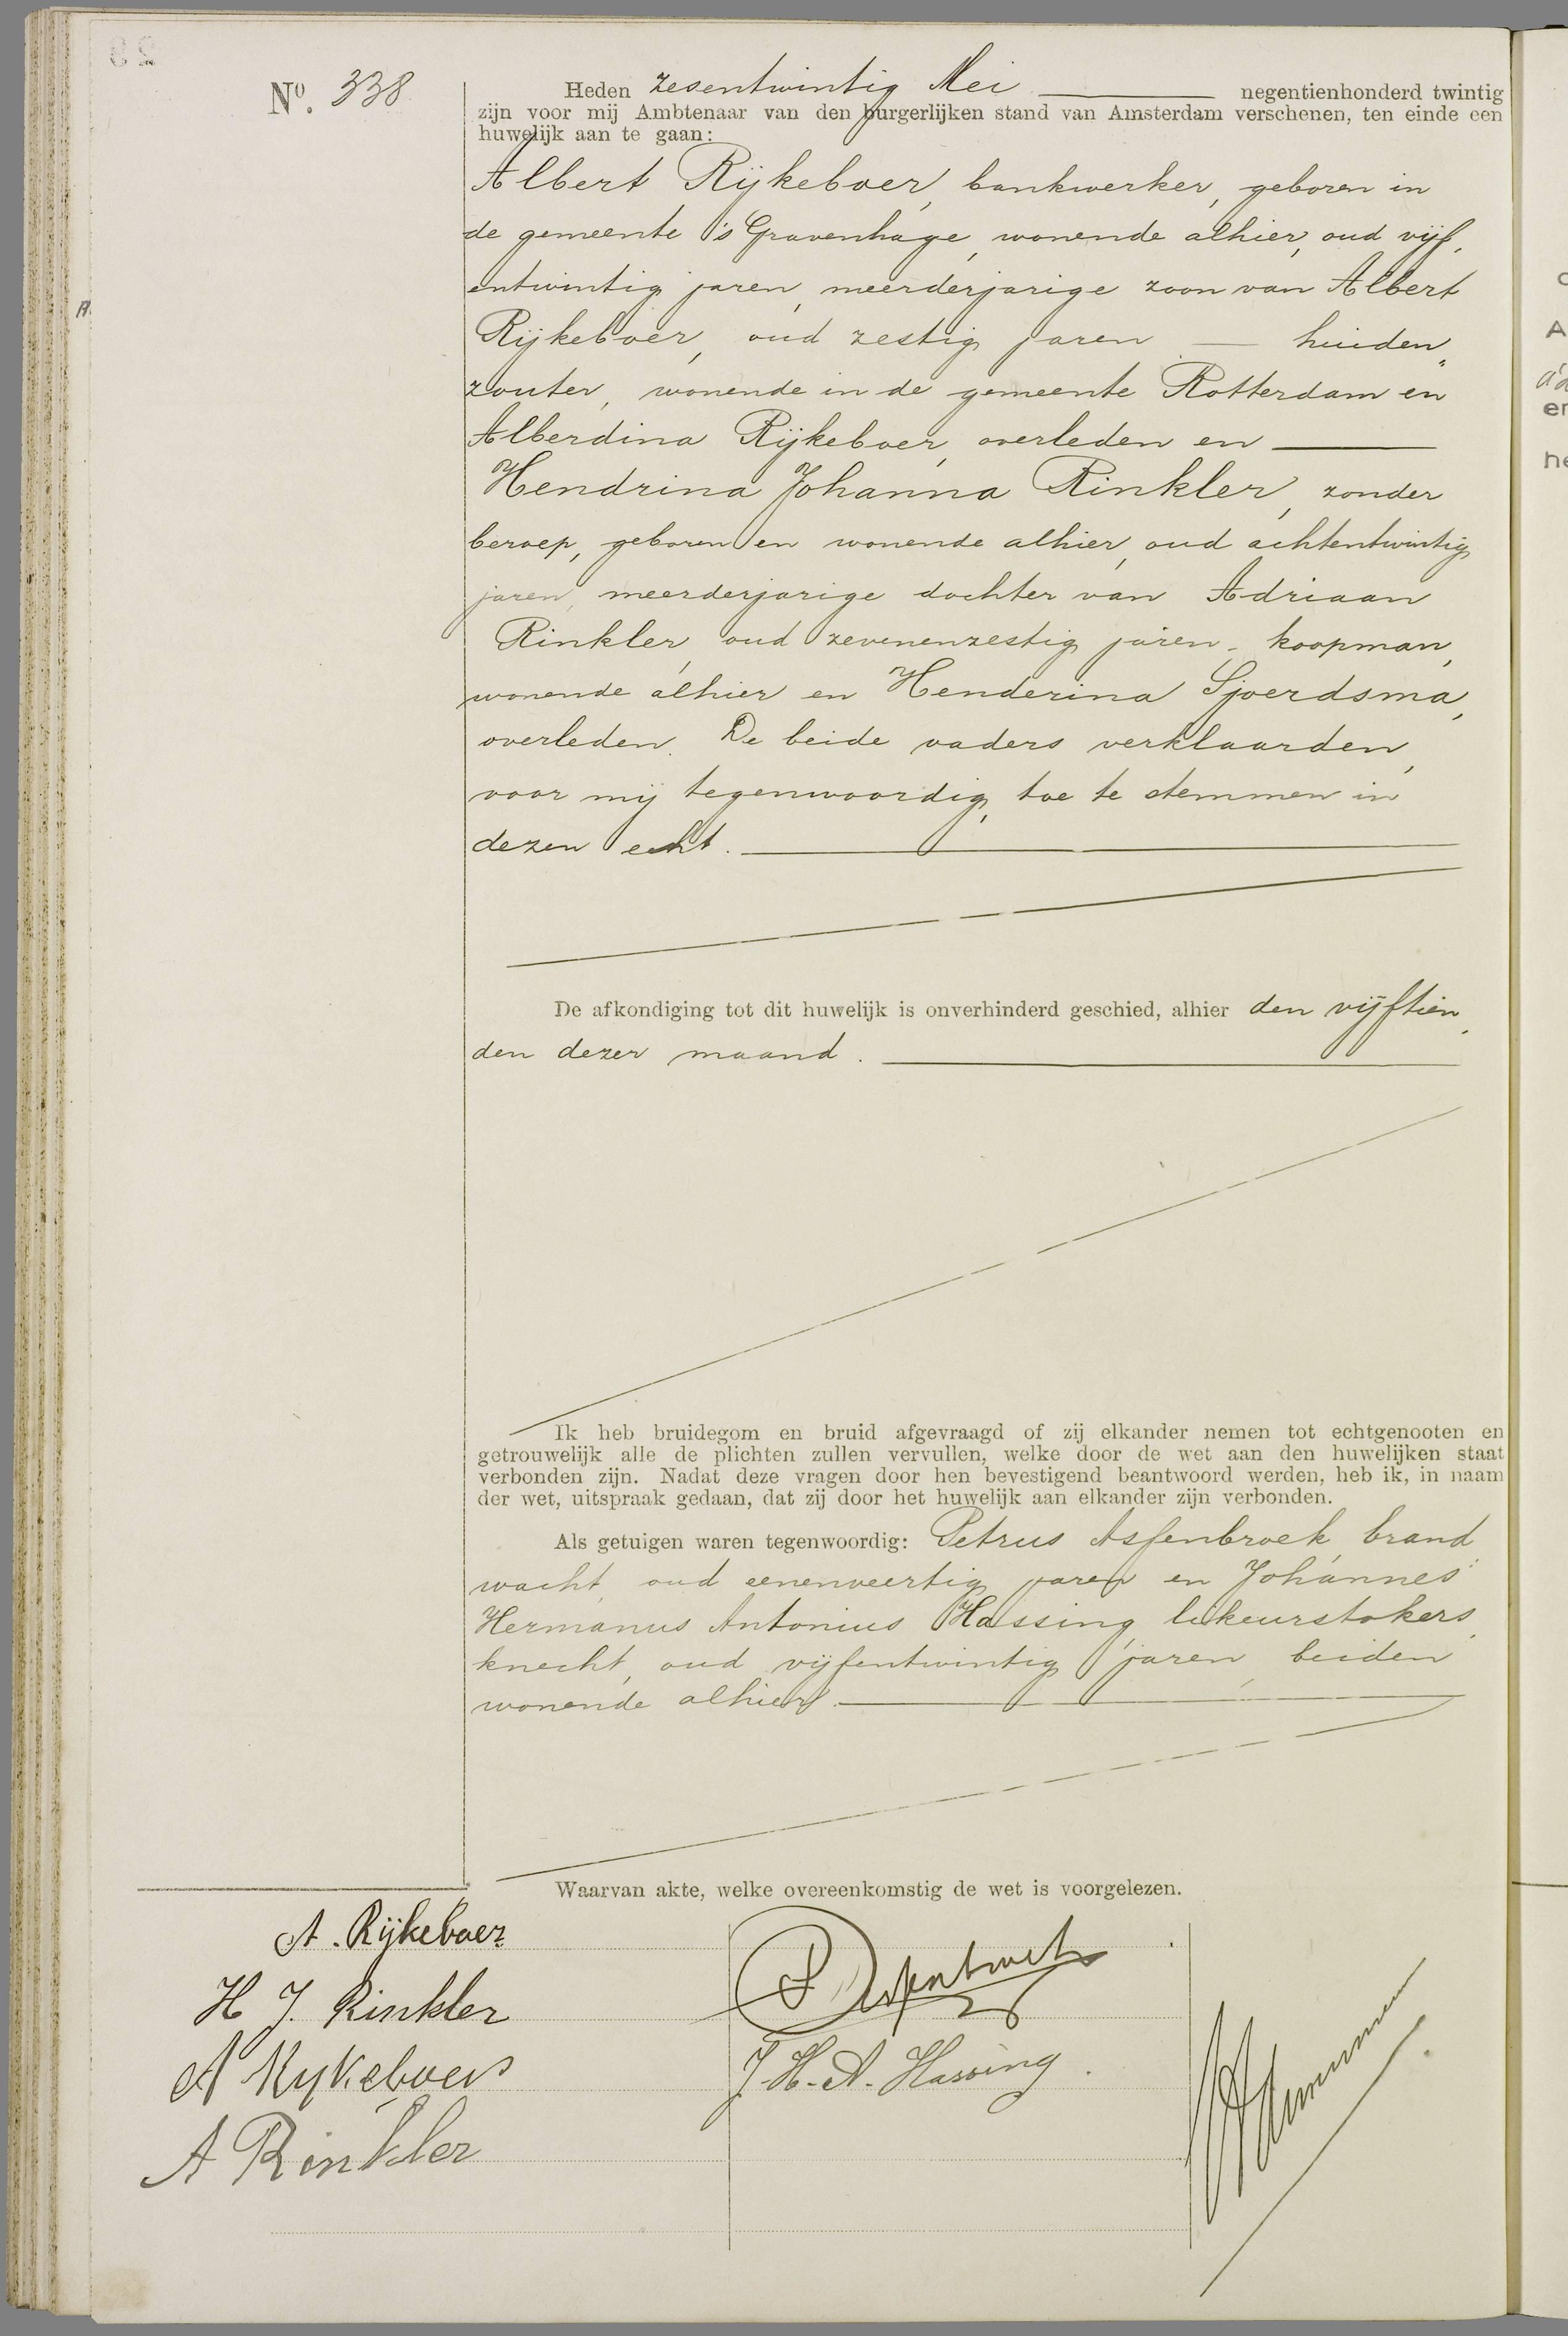 Nº. 338
Heden zesentwintig Mei negentienhonderd twintig
zijn voor mij Ambtenaar van den burgerlijken stand van Amsterdam verschenen, ten einde een
huwelijk aan te gaan:
Albert Rijkeboer, bankwerker, geboren in
de gemeente 's Gravenhage, wonende alhier, oud vijf-
entwintig jaren, meerderjarige zoon van Albert
Rijkeboer, oud zestig jaren — huiden-
zouter, wonende in de gemeente Rotterdam en
Alberdina Rijkeboer, overleden en
Hendrina Johanna Rinkler, zonder
beroep, geboren en wonende alhier, oud achtentwintig
jaren, meerderjarige dochter van Adriaan
Rinkler, oud zevenenzestig jaren, koopman,
wonende alhier en Henderina Sjoerdsma,
overleden. De beide vaders verklaarden,
voor mij tegenwoordig, toe te stemmen in
dezen echt.
De afkondiging tot dit huwelijk is onverhinderd geschied, alhier den vijftien-
den dezer maand.
Ik heb bruidegom en bruid afgevraagd of zij elkander nemen tot echtgenooten en
getrouwelijk alle de plichten zullen vervullen, welke door de wet aan den huwelijken staat
verbonden zijn. Nadat deze vragen door hen bevestigend beantwoord werden, heb ik, in naam
der wet, uitspraak gedaan, dat zij door het huwelijk aan elkander zijn verbonden.
Als getuigen waren tegenwoordig: Petrus Asfenbroek, brand-
wacht, oud eenenveertig jaren en Johannes
Hermanus Antonius Hassing, likeurstokers-
knecht, oud vijfentwintig jaren, beiden
wonende alhier.
Waarvan akte, welke overeenkomstig de wet is voorgelezen.
A. Rijkeboer
H J. Rinkler
A Rykeboer
A Rinkler
J. H. A. Hassing.